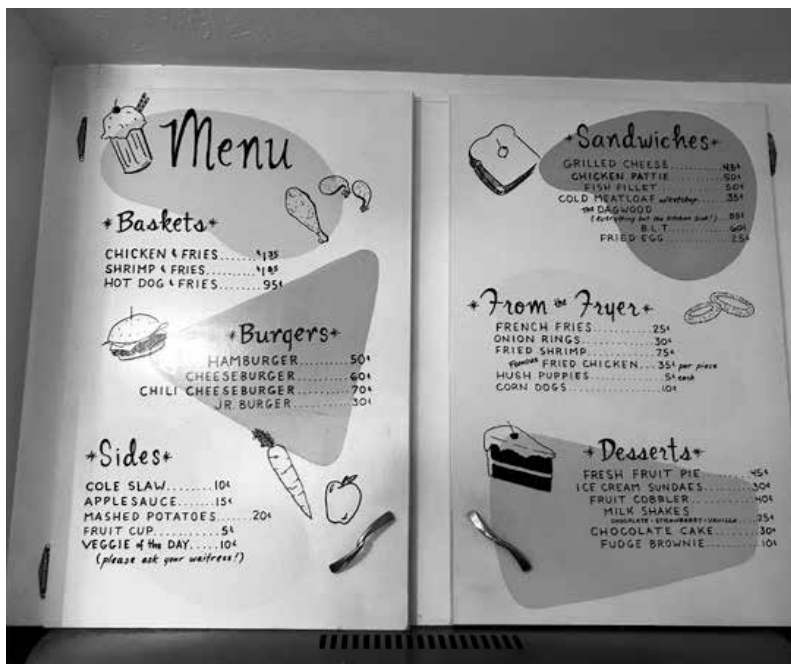 Menu
*Baskets*
CHICKEN & FRIES.......$1.35
SHRIMP & FRIES.......$1.85
HOT DOG & FRIES.......95¢
*Burgers*
HAMBURGER.......50¢
CHEESEBURGER.......60¢
CHILI CHEESEBURGER.......70¢
JR. BURGER.......30¢
*Sides*
COLE SLAW.......10¢
APPLESAUCE.......15¢
MASHED POTATOES.......20¢
FRUIT CUP.......5¢
VEGGIE of the DAY.......10¢
(please ask your waitress!)
*Sandwiches*
GRILLED CHEESE.......45¢
CHICKEN PATTIE.......50¢
FISH FILLET.......50¢
COLD MEATLOAF w/ketchup.......35¢
the DAGWOOD
(everything but the kitchen sink!)
B.L.T.......60¢
FRIED EGG.......25¢
*From the Fryer*
FRENCH FRIES.......25¢
ONION RINGS.......30¢
FRIED SHRIMP.......75¢
Famous FRIED CHICKEN...35¢ per piece
HUSH PUPPIES.......5¢ each
CORN DOGS.......10¢
*Desserts*
FRESH FRUIT PIE.......45¢
ICE CREAM SUNDAES.......30¢
FRUIT COBBLER.......40¢
MILK SHAKES
CHOCOLATE - STRAWBERRY - VANILLA.......25¢
CHOCOLATE CAKE.......30¢
FUDGE BROWNIE.......10¢